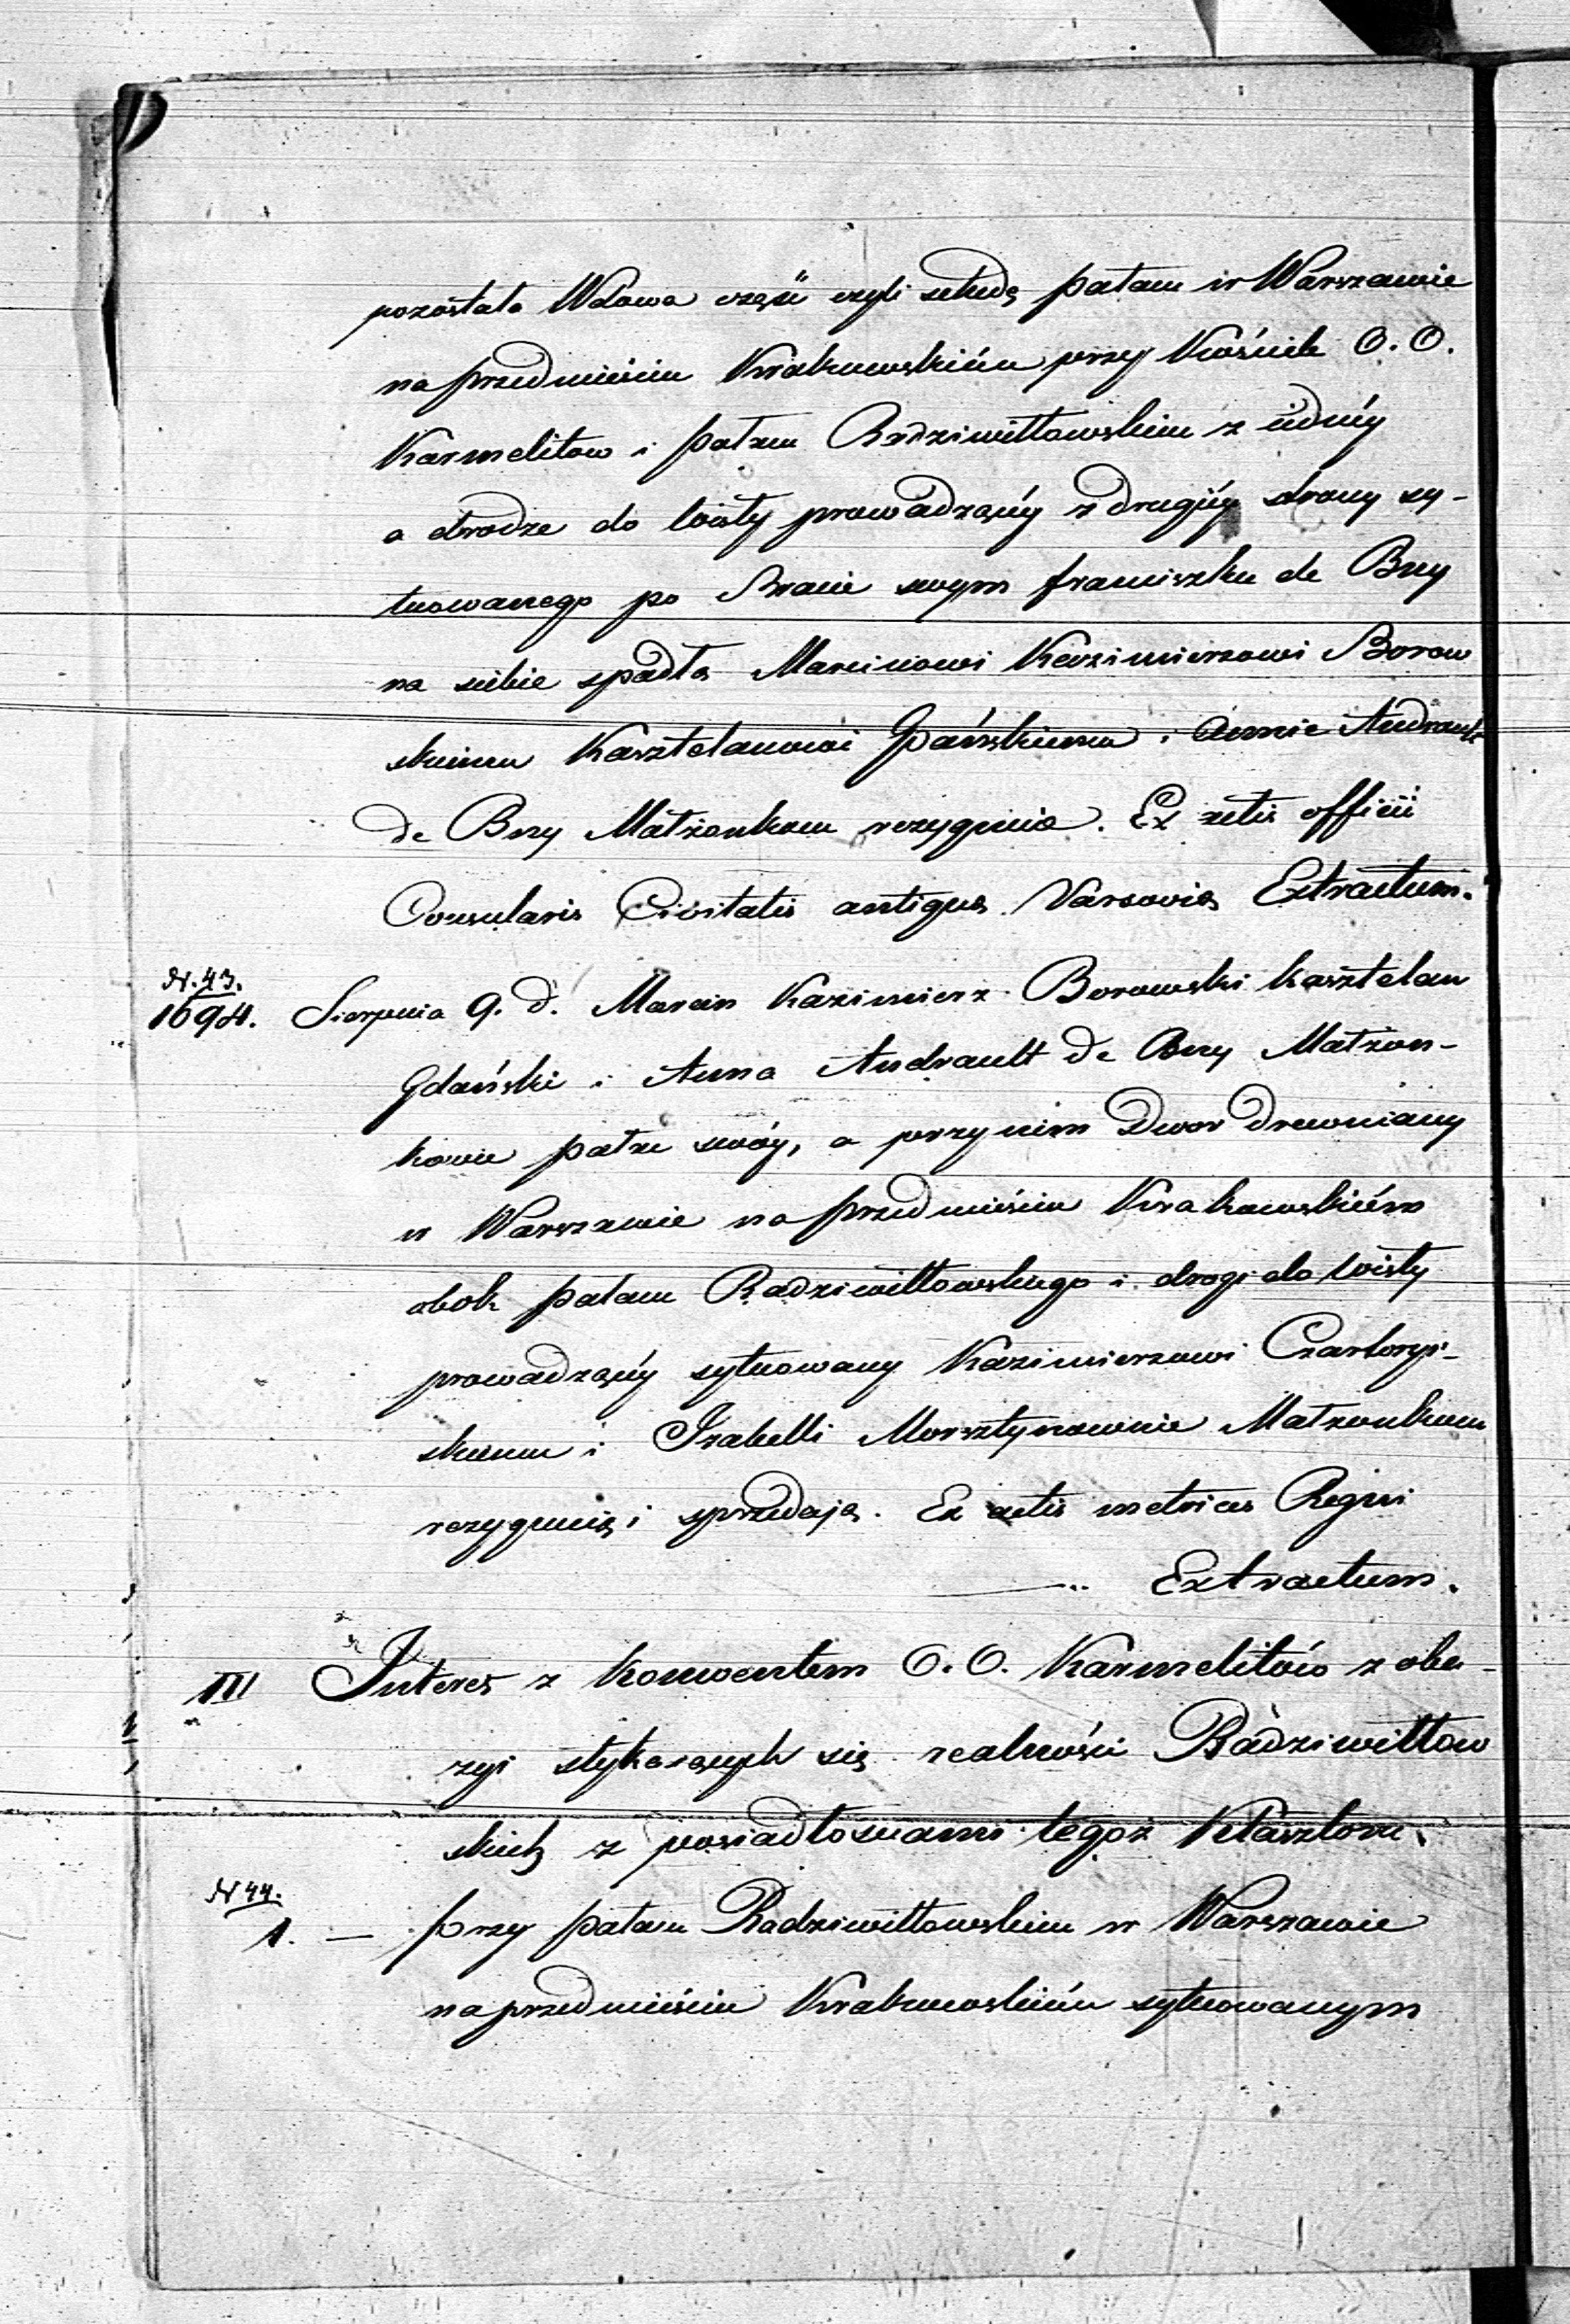 pozostała Wdowa część czyli schedę pałacu w Warszawie
na przedmieściu Krakowskiém przy Kościele O.O.
Karmelitow i pałacu Radziwiłłowskim z iednéy
a drodze do Wisły prowadzącéy z drugiéy strony sy-
tuowanego po Bracie swym franciszku de Buy
na siebie spadłą Marcinowi Kazimierzowi Borow
skiemu Kasztelanowi Gdańskiemu i Annie Andrault
de Buy Małżonkom rezygnuie. Ex actis officii
Consularis Civitatis antiquæ Varsoviæ Extractum.
N. 43.
1694. Sierpnia 9. d. Marcin Kazimierz Borowski kasztelan
Gdański i Anna Andrault de Buy Małżon-
kowie pałac swóy, a przy nim Dwor drewniany
w Warszawie na przedmieściu Krakowskiém
obok pałacu Radziwiłłowskiego i drogi do Wisły
prowadzącéy sytuowany Kazimierzowi Czartoryi-
skiemu i Izabelli Morsztynownie Małżonkom
rezygnuią i sprzedają. Ex actis metrices Regni
Extractum.
III Interes z Konwentem O.O. Karmelitów z oka-
zyi stykaiących się realności Radziwiłłow
skich z posiadłościami tegoż Klasztoru.
N 44.
1. — przy pałacu Radziwiłłowskim w Warszawie
na przedmieściu Krakowskiém sytuowanym